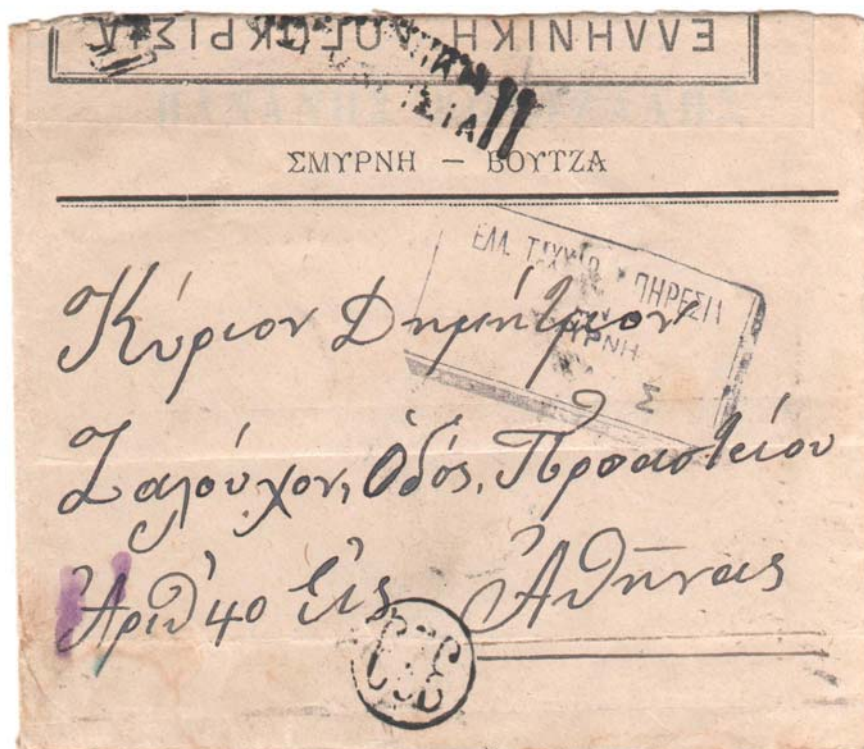 ΕΛΛΗΝΙΚΗ ΛΟΓΟΚΡΙΣΙΑ
ΣΜΥΡΝΗ – ΒΟΥΤΖΑ
ΕΛΛ. ΤΑΧΥΔ ΥΠΗΡΕΣΙΑ
ΣΜΥΡΝΗ
Κύριον Δημήτριον
Ζαλούχον, Ὁδός, Προαστείου
Ἀριθ 40 Εἰς Ἀθήνας